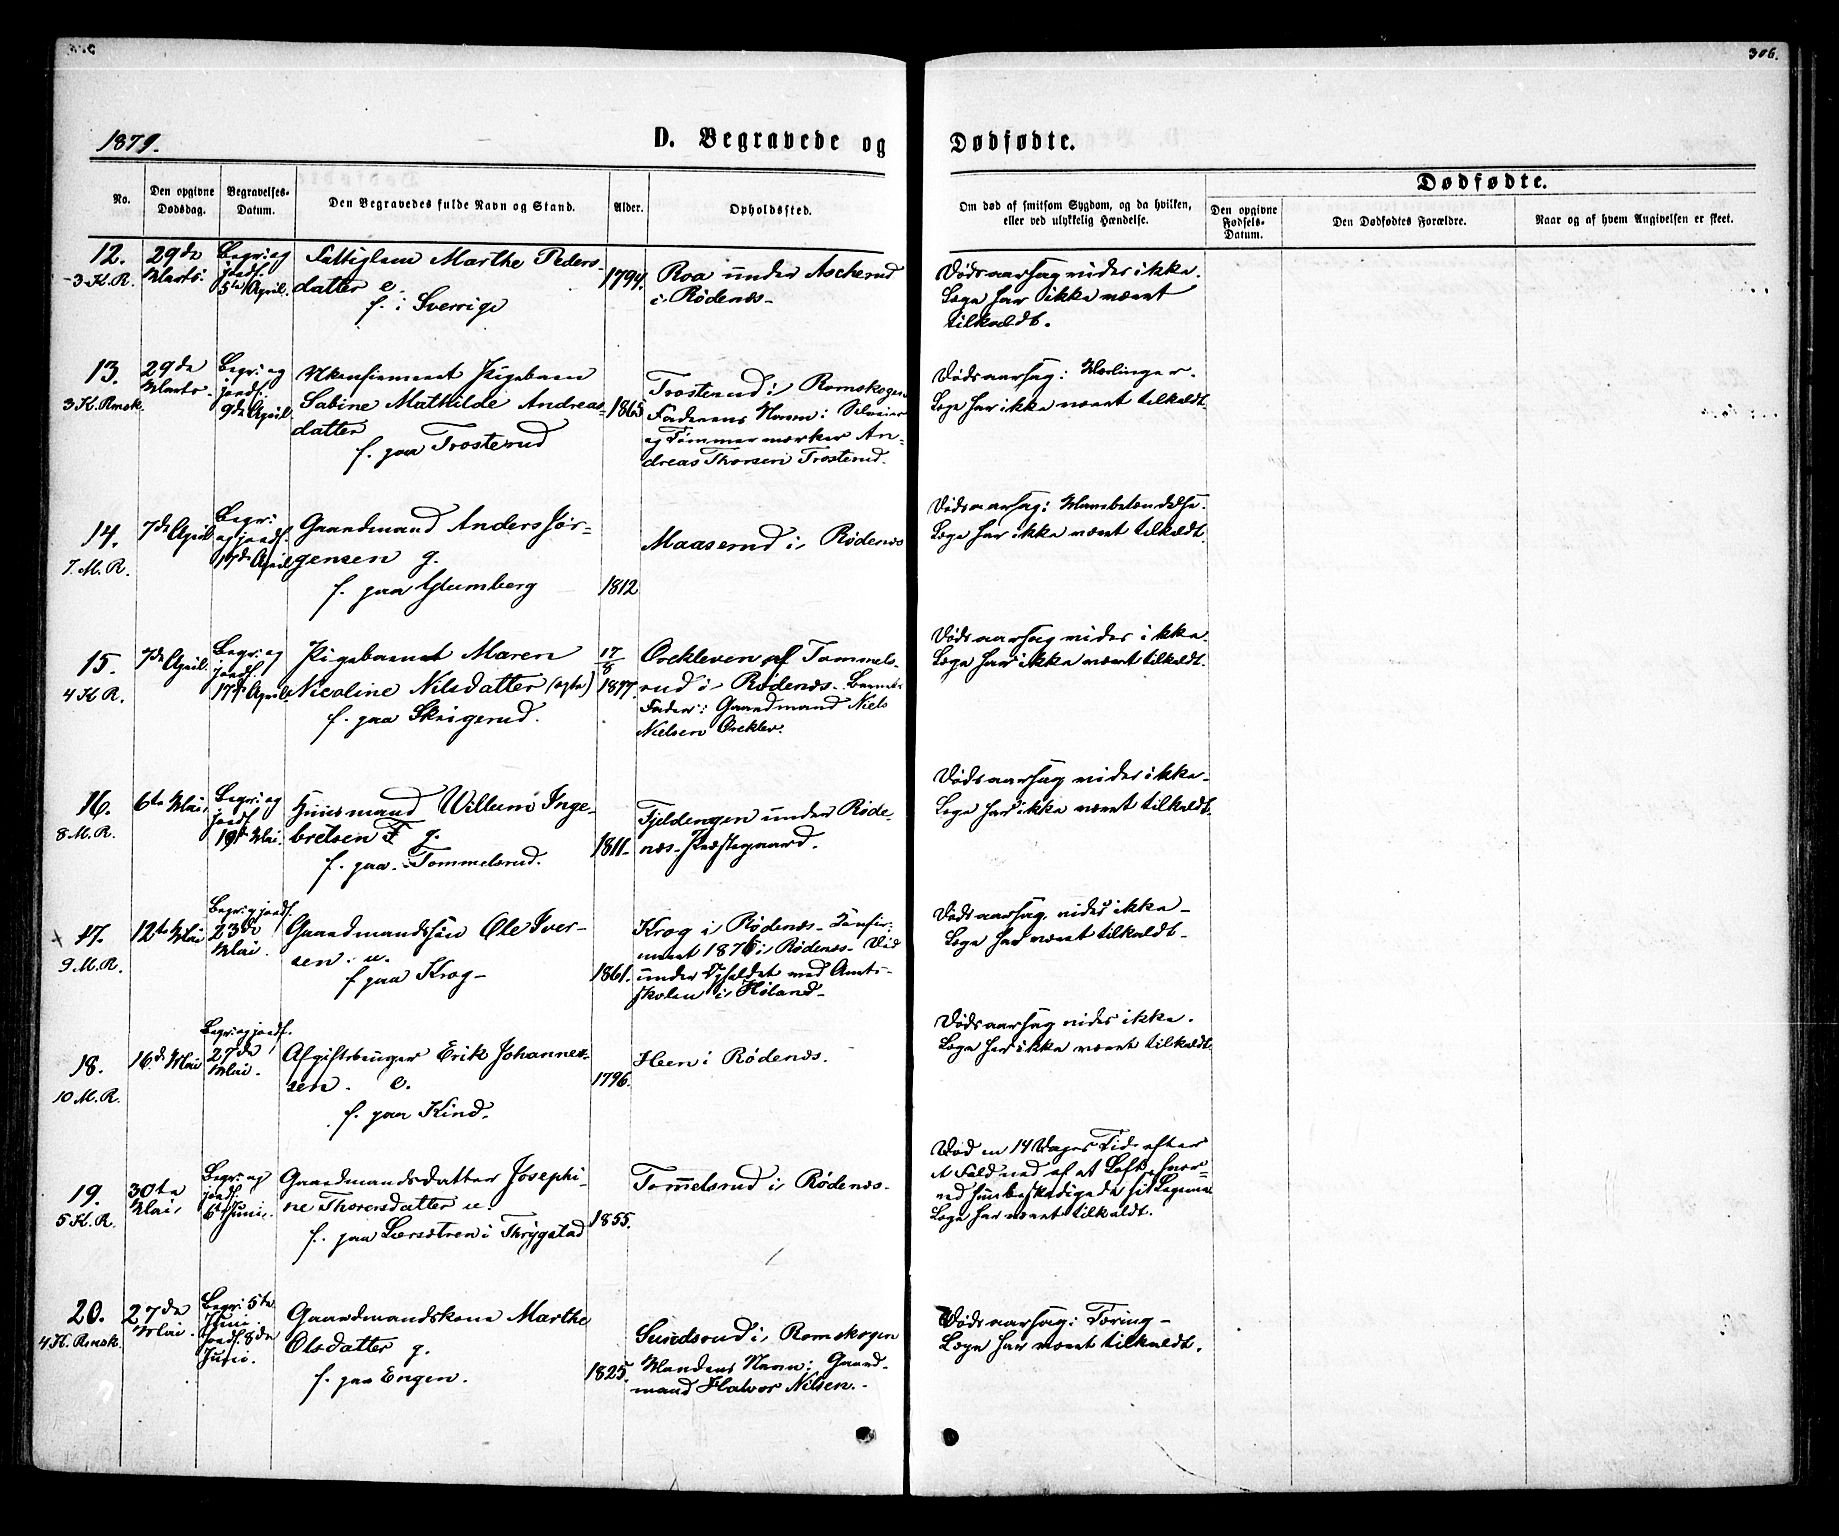 306.
1879.
D. Begravede og Dødfødte.
No.
Den opgivne Dødsdag.
Begravelses-Datum.
Den Begravedes fulde Navn og Stand.
Alder.
Opholdssted.
Om død af smitsom Sygdom, og da hvilken, eller ved ulykkelig Hændelse.
Dødfødte.
Den opgivne Fødsels-Datum.
Den Dødfødtes Forældre.
Naar og af hvem Angivelsen er skeet.
12.
3 K. R.
29de
Marts.
Begr. og
jordf.
5te April.
Fattiglem Marthe Peders-
datter e.
f. i Sverrige
1794.
Roa under Ascherud
i Rødenæs-
Dødsaarsag vides ikke.
Læge har ikke været
tilkaldt.
13.
3 K. Rmsk.
29de
Marts.
Begr. og
jordf.
9de April
Ukonfirmeret Pigebarn
Sabine Mathilde Andreas-
datter
f. paa Trosterud
1865
Trosterud i Romskogen
Faderens Navn: Selveier
og Tømmermærker An-
dreas Thorsen Trosterud.
Dødsaarsag: Meslinger.
Læge har ikke været tilkaldt.
14.
7. M. R.
7de April
Begr.
og jordf.
17de April
Gaardmand Anders Jør-
gensen g.
f. paa Glumberg
1812
Maaserud i Rødenæs
Dødsaarsag:
Læge har ikke været tilkaldt.
15.
4 K R.
7de April.
Begr. og
jordf.
17de April
Pigebarnet Maren
Nicoline Nilsdatter (ægte)
f. paa Skrigerud.
17/8
1877.
Orekleven af Tommels-
rud i Rødenæs. Barnets
Fader: Gaardmand Niels
Nielsen Oreklev.
Dødsaarsag vides ikke.
Læge har ikke været tilkaldt.
16.
8 M. R.
6te Mai.
Begr. og
jordf.
19de Mai.
Huusmand Willum Inge-
bretsen g.
f. paa Tommelsrud.
1811.
Fjeldengen under Røde-
næs Præstegaard.
Dødsaarsag vides ikke.
Læge har ikke været tilkaldt.
17.
9 M. R.
12te Mai
Begr. og jordf.
23de
Mai.
Gaardmandssøn Ole Iver-
sen. u.
f paa Krog-
1861.
Krog i Rødenæs- Konfir-
meret 1876 i Rødenæs. Død
under Opholdet ved Amts-
skolen i Høland-
Dødsaarsag vides ikke-
Læge har været tilkaldt-
18.
10 M. R.
16de Mai
Begr. og jordf.
27de
Mai.
Afgiftsbruger Erik Johannes-
sen. e.
f. paa Kind.
1796.
Heen i Rødenæs.
Dødsaarsag vides ikke.
Læge har ikke været tilkaldt.
19.
5 K. R.
30te
Mai
Begr. og
jordf.
6te Juni.
Gaardmandsdatter Josephi-
ne Thorersdatter u.
f. paa i Thrygstad
1855.
Tommelsrud i Rødenæs.
Død en 14 Dages Tid efter
et Fald ned af et Loft, hvor-
ved hun beskadigede sit Legeme
Læge har været tilkaldt.
20.
4 K. Rmsk.
27de
Mai.
Begr. 5te
Juni
jordf. 8de
Juni.
Gaardmandskone Marthe
Olsdatter g.
f. paa Engen.
1825.
Sundsrud i Romskogen
Mandens Navn: Gaard-
mand Halvor Nilsen.
Dødsaarsag: Tæring-
Læge har været tilkaldt.